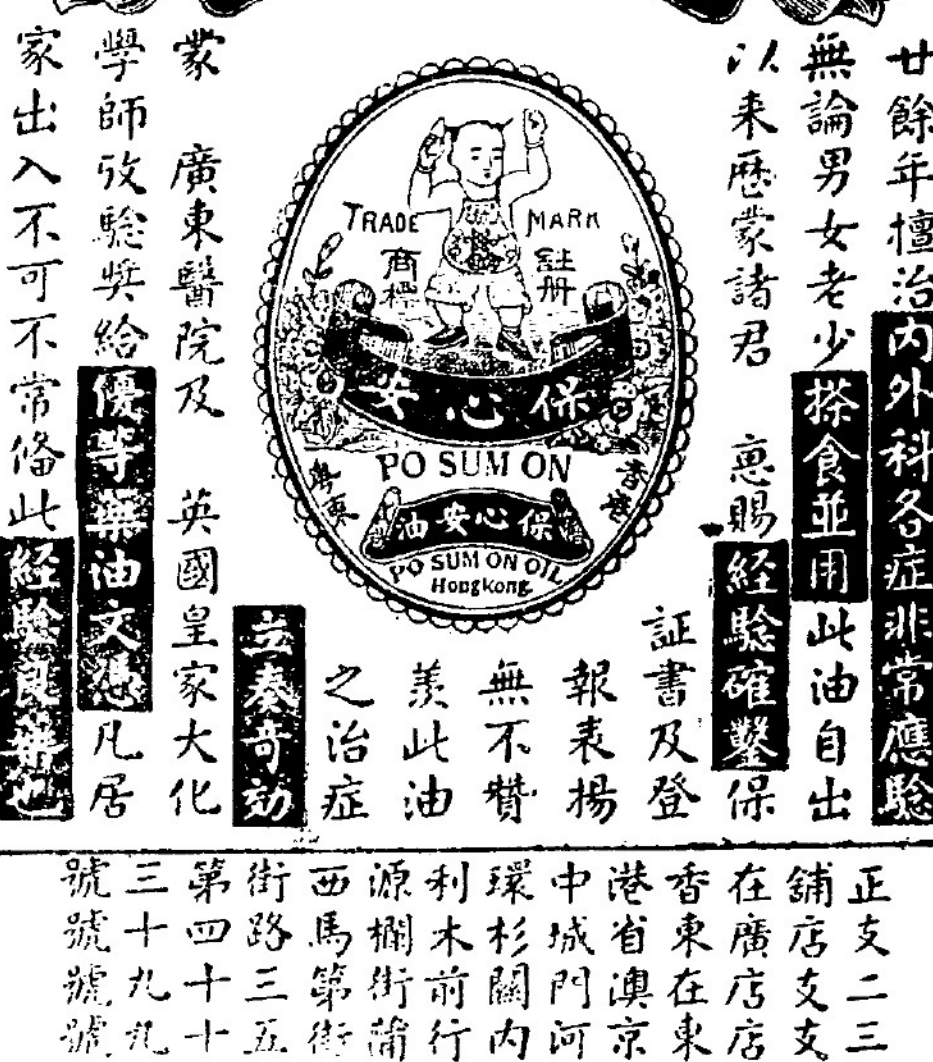 廿餘年檀治內外科各症非常應驗
無論男女老少搽食並用此油自出
以来歷蒙諸君 惠賜経驗確鑿保
証書及登
報表揚
無不贊
羨此油
之治症
立奏奇効
蒙 廣東醫院及 英國皇家大化
學師攷驗奨給優等藥油文憑凡居
家出入不可不常俻此経驗良藥也
TRADE MARK
註册
商標
保心安
PO SUM ON
香港
粤東
保心安油
PO SUM ON OIL
Hongkong.
正舖在香港中環利源西街第三號
支店廣東省城杉木欄馬路四十號
二支店在澳門關前街第三十九號
三支店東京河內行蒲街五十九號